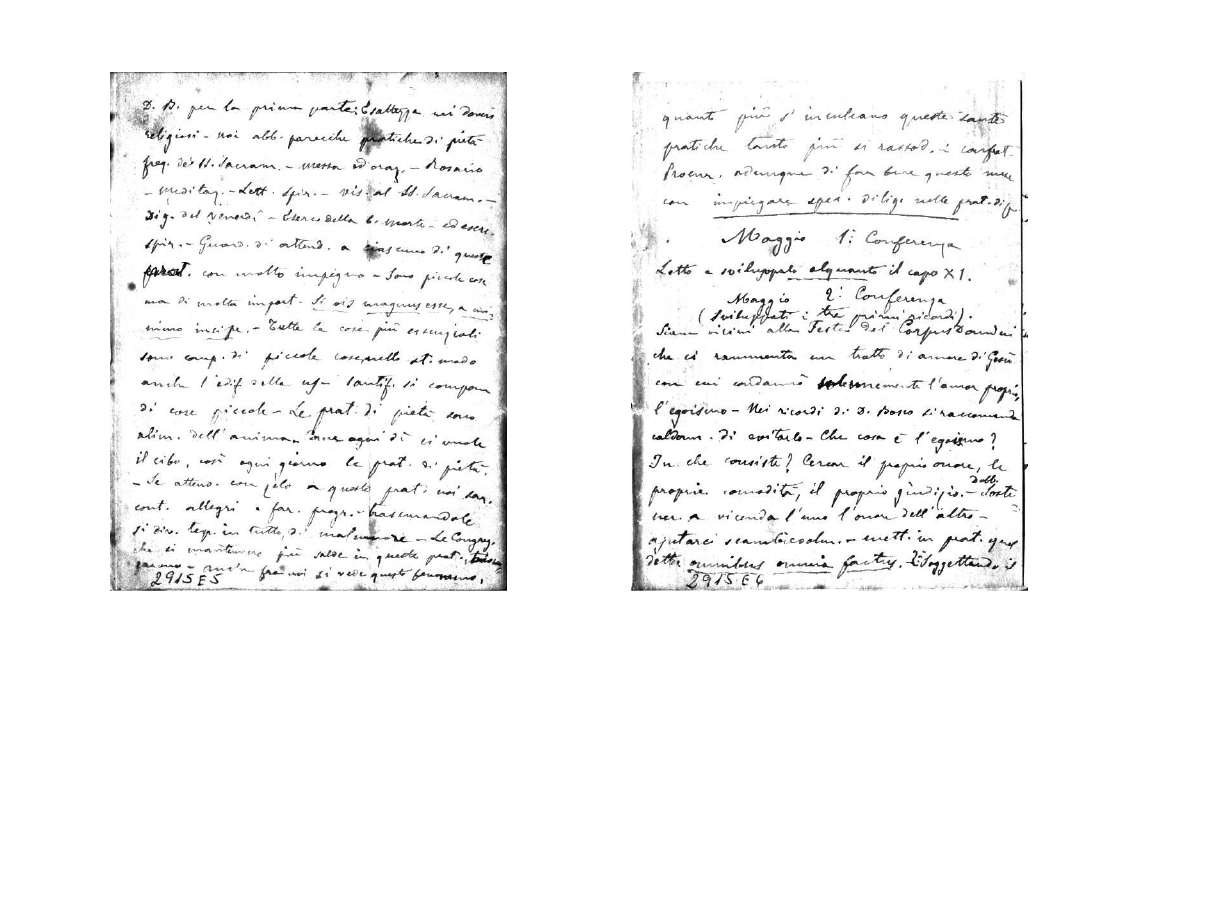 D. B. per la prima parte: Esattezza nei doveri
religiosi - noi abb. parecchie pratiche di pietà
freq. de' SS. Sacram. - messa ed oraz. - Rosario
- meditaz. - Lett. spir. - vis. al SS. Sacram. -
Dig. del Venerdì - Eserc. della b. morte - ed eserc.
spir. - Guard. di attend. a ciascuna di queste
prat. con molto impegno - Sono piccole cose
ma di molta import. - Si vis magnus esse, a mi-
nimo incipe. - Tutte le cose più essenziali
sono comp. di piccole cose, nello st. modo
anche l'edif. della santif. si compone
di cose piccole - Le prat. di pietà sono
alim. dell'anima. ogni dì ci vuole
il cibo, così ogni giorno le prat. di pietà.
- Se attend. con zelo a queste prat. noi sar.
cont. allegri e far. progr. - trascurandole
si div. tep. in tutto, di malumore - Le Congreg.
che si mantennero più salde in queste prat.
- anche fra noi si vede questo
2915 E5
quanto più s'inculcano queste sante
pratiche tanto più si rassod. i confrat.
Procur. adunque di far bene questo mese
con impiegare spec. dilig. nelle prat. di p.
Maggio 1ª Conferenza
Letto e sviluppato alquanto il capo XI.
Maggio 2ª Conferenza
(sviluppati i tre primi ricordi).
Siamo vicini alla Festa del Corpus Domini
che ci rammenta un tratto di amore di Gesù
con cui condannò solennemente l'amor proprio,
l'egoismo - Nei ricordi di D. Bosco si raccomanda
caldam. di evitarlo - Che cosa è l'egoismo?
In che consiste? Cercar il proprio onore, le
proprie comodità, il proprio giudizio. - Dobb. soste
ner. a vicenda l'uno l'onor dell'altro -
ajutarci scambievolm. - mett. in prat. quel
detto omnibus omnia factus. - Assoggettando il
2915 E6